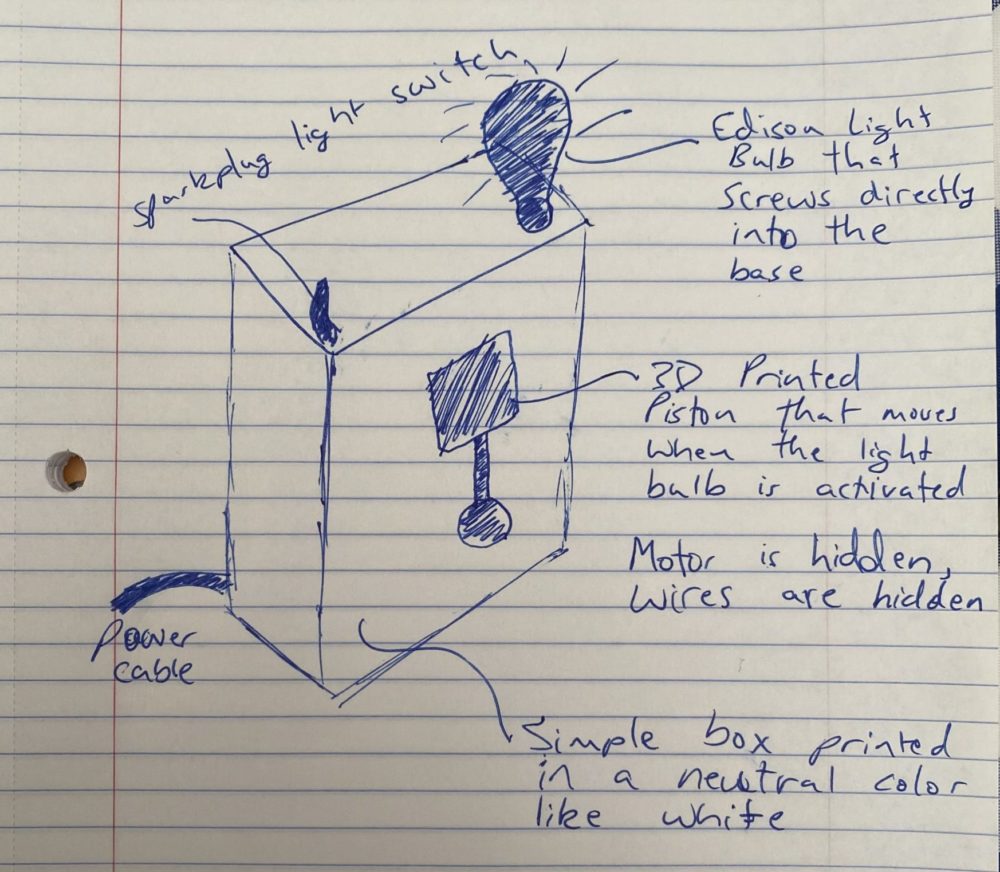 Sparkplug light switch
Edison Light
Bulb that
Screws directly
into the
base
3D Printed
Piston that moves
when the light
bulb is activated
Motor is hidden,
wires are hidden
Power
cable
Simple box printed
in a neutral color
like white